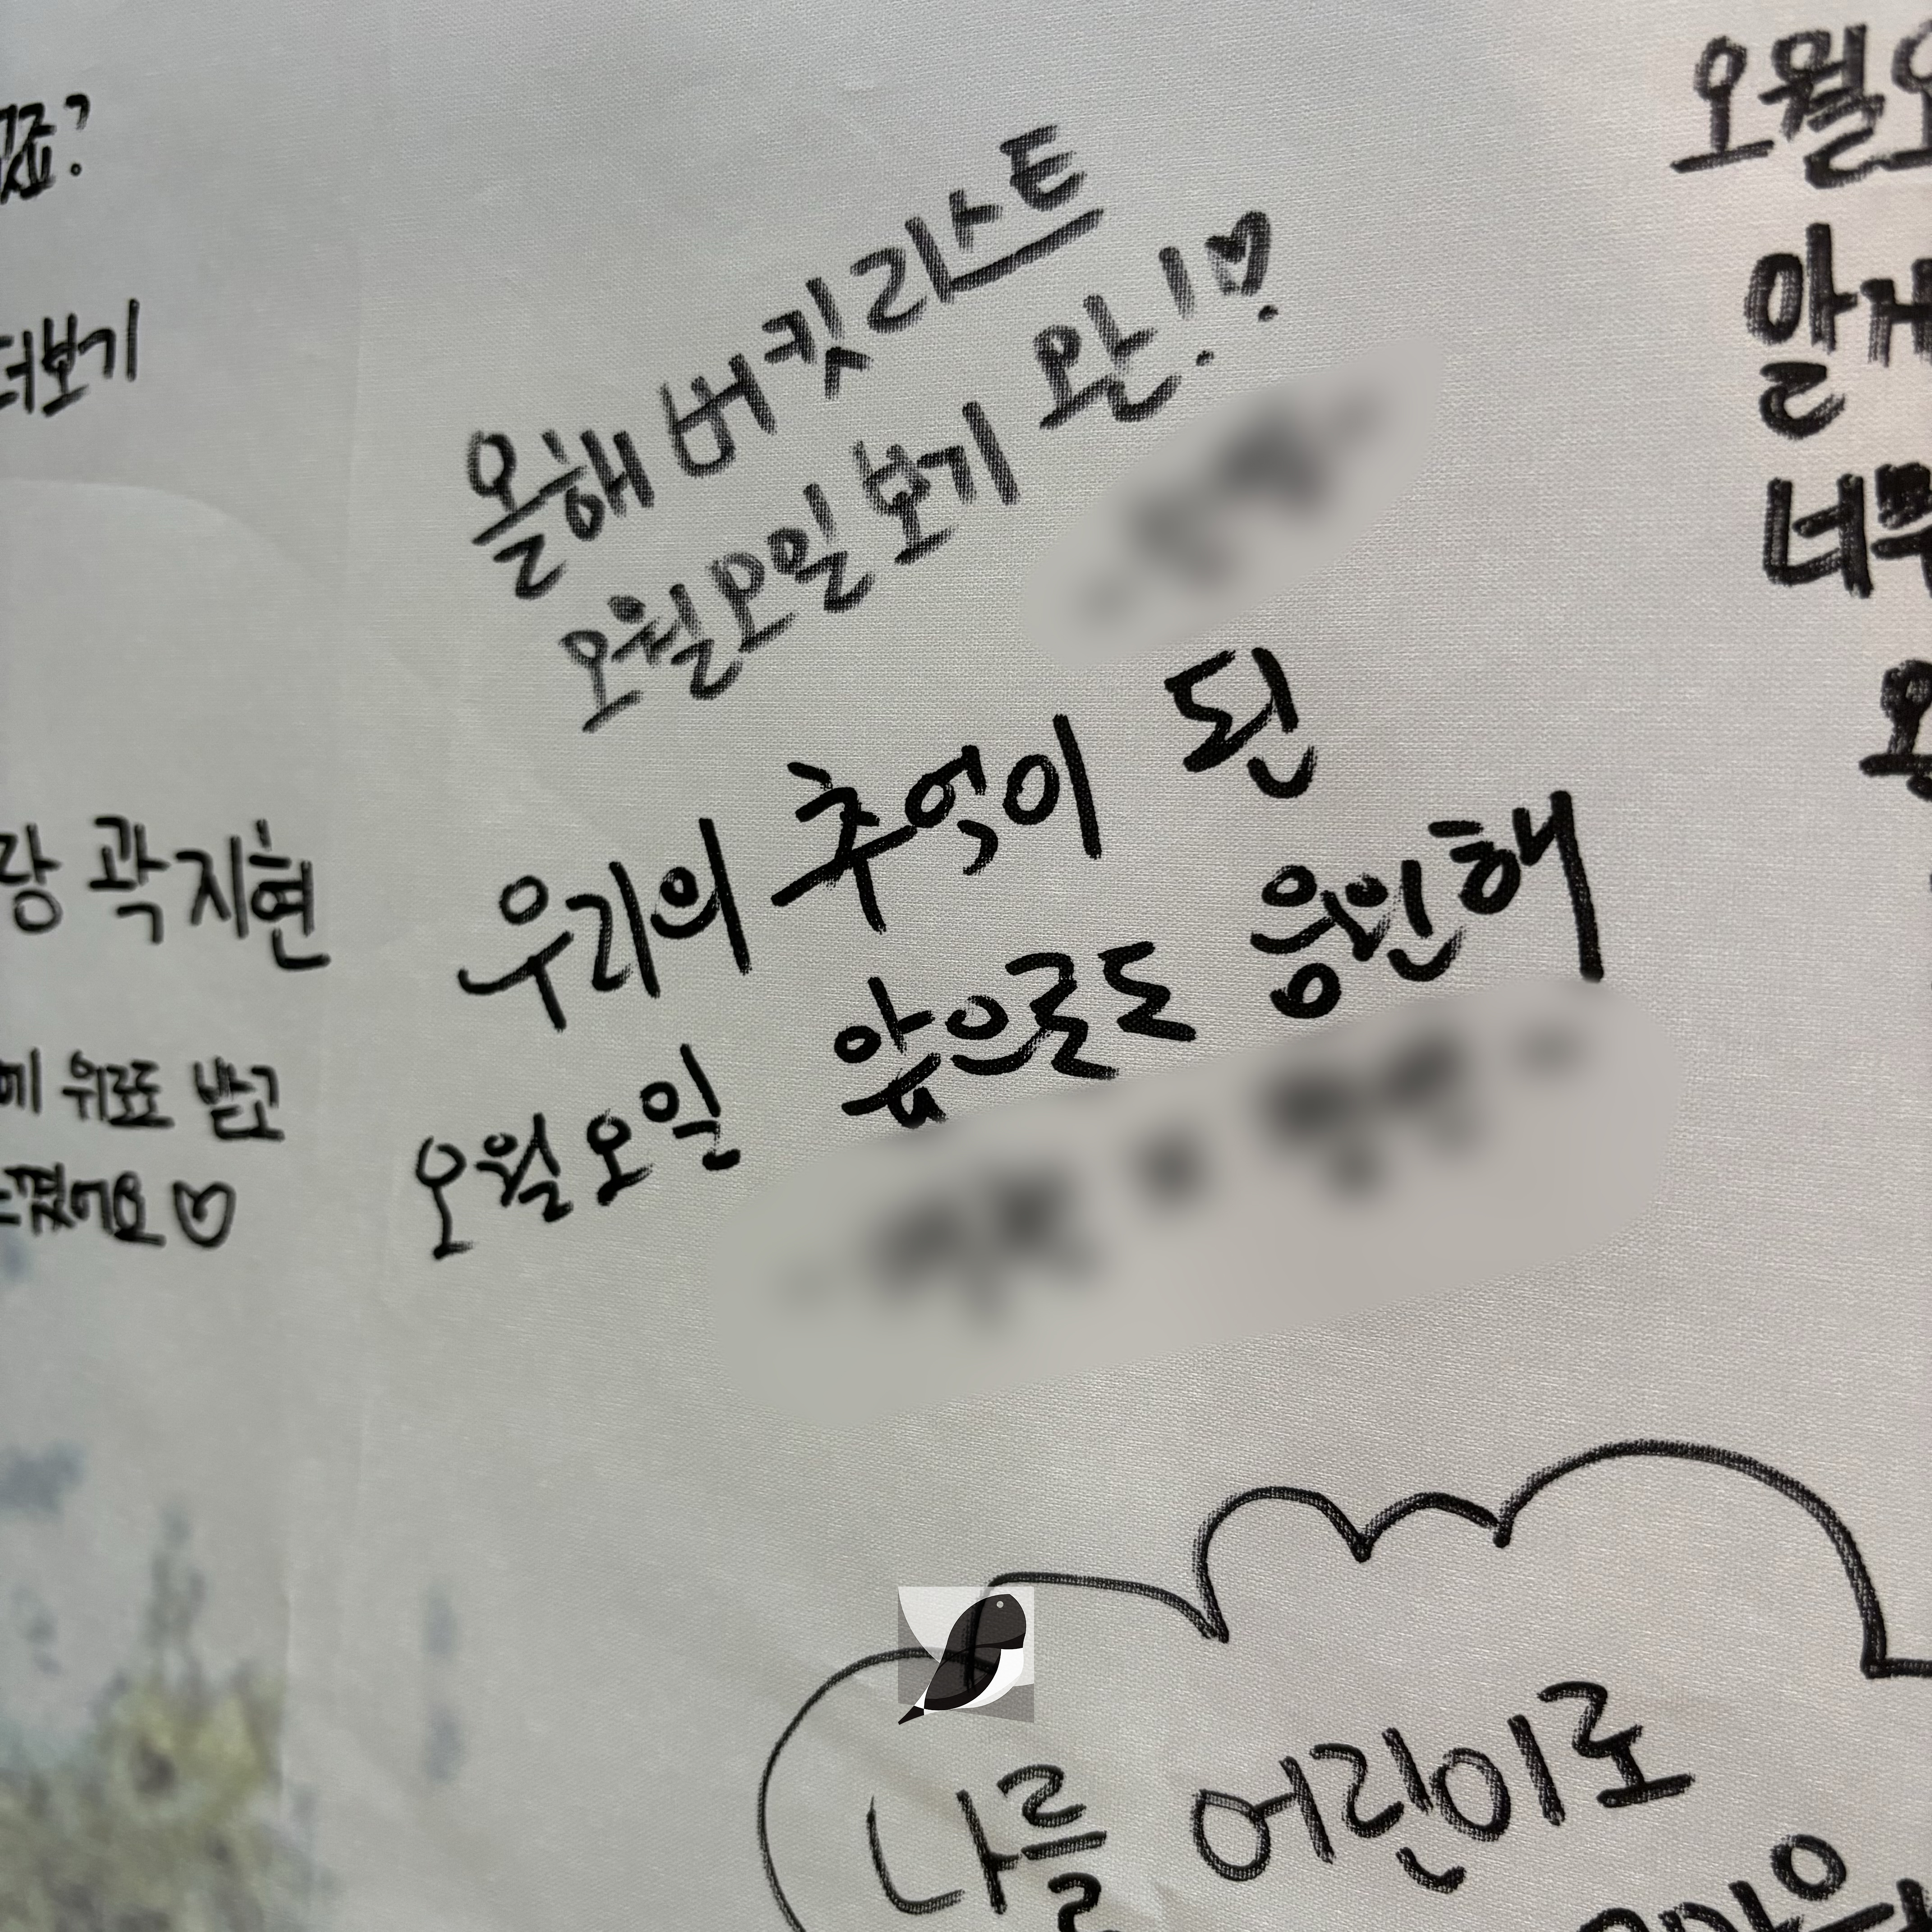 죠?
더보기
랑 곽지현
에 위로도 받고
느꼈어요♡
올해 버킷리스트
오월오일 보기 완!♡
우리의 추억이 된
오월오일 앞으로도 응원해
나를 어린이로
오월오
알게
너무